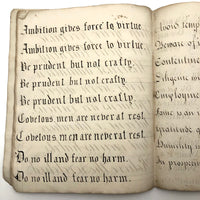 Ambition gives force to virtue
Ambition gives force to virtue
Be prudent but not crafty.
Be prudent but not crafty.
Be prudent but not crafty.
Covetous men are never at rest.
Covetous men are never at rest.
Do no ill and fear no harm.
Do no ill and fear no harm.
Avoid
Beware of
Contentm
Diligence
Employme
gratitude
Humility
In prosperi